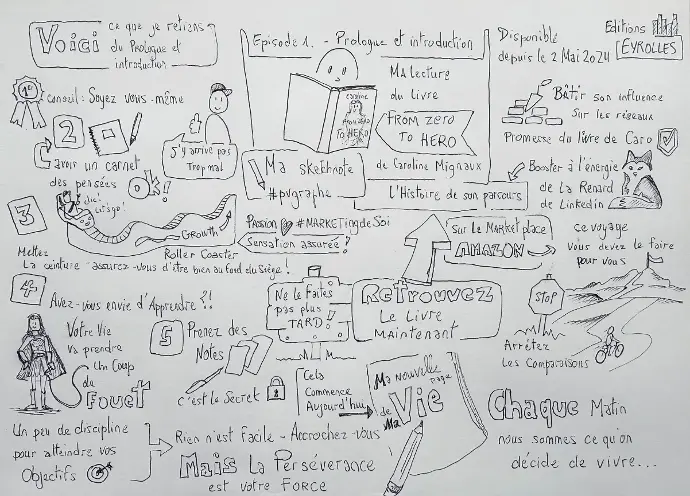 Voici
ce que je retiens
du Prologue et
introduction
Episode 1. - Prologue et introduction
Disponible
depuis le 2 Mai 2024
Editions
EYROLLES
1°
conseil : Soyez vous-même
2
avoir un carnet
des pensées
OK!
J'y arrive pas
Trop mal
MA Lecture
du Livre
FROM ZERO
TO HERO
de Caroline Mignaux
FROM ZERO
TO HERO
Ma sketchnote
#pvgraphe
L'Histoire de son parcours
Bâtir son influence
Sur les réseaux
Promesse du livre de Caro
Booster à l'énergie
de La Renard
de Linkedin
3
GROWTH
Roller Coaster
Mettez
La ceinture assurez-vous d'être bien au fond du siège !
Passion #MARKETingdeSoi
Sensation assurée !
Sur le Market place
AMAZON
ce voyage
vous devez le faire
pour vous
4
Avez-vous envie d'Apprendre ?!
Votre Vie
va prendre
un Coup
de
Fouet
5
Prenez des
Notes
c'est le Secret
Ne le Faites
pas plus
TARD!
Retrouvez
Le Livre
MAintenant
STOP
Arrêtez
Les Comparaisons
Cela
Commence
Aujourd'hui
Ma nouvelle
page
de Ma
Vie
Un peu de discipline
pour atteindre vos
Objectifs
Rien n'est facile - Accrochez-vous
Mais La Persévérance
est votre Force
Chaque Matin
nous sommes ce qu'on
décide de vivre...